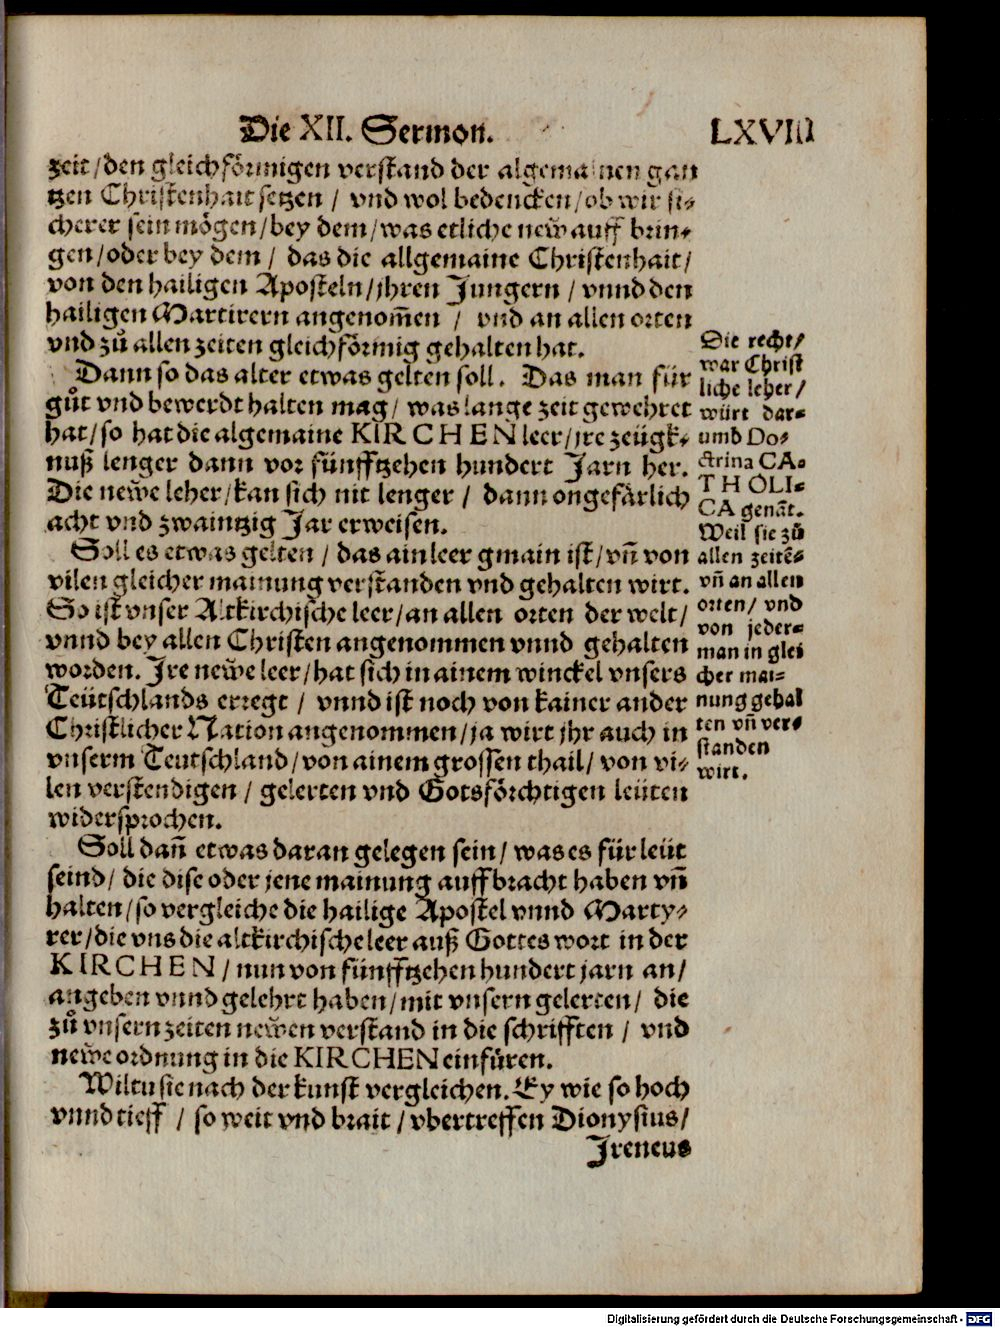 Die XII. Sermon. LXVIII
zeit / den gleichförmigen verstand der algemainen gan
tzen Christenhait setzen / vnd wol bedencken / ob wir si-
cherer sein mögen / bey dem / was etliche new̃ auff brin-
gen / oder bey dem / das die allgemaine Christenhait /
von den hailigen Aposteln / jhren Jungern / vnnd den
hailigen Martirern angenom̃en / vnd an allen orten
vnd zů allen zeiten gleichförmig gehalten hat.
Dann so das alter etwas gelten soll. Das man für
gůt vnd bewerdt halten mag / was lange zeit gewehret
hat / so hat die algemaine KIRCHEN leer / jre zeügk-
nuß lenger dann vor fünfftzehen hundert Jarn her.
Die new̃e leher / kan sich nit lenger / dann ongefärlich
acht vnd zwaintzig Jar erweisen.
Soll es etwas gelten / das ain leer gmain ist / vñ von
vilen gleicher mainung verstanden vnd gehalten wirt.
So ist vnser Altkirchische leer / an allen orten der welt /
vnnd bey allen Christen angenommen vnnd gehalten
worden. Jre new̃e leer / hat sich in ainem winckel vnsers
Teütschlands erregt / vnnd ist noch von kainer ander
Christlicher Nation angenommen / ja wirt jhr auch in
vnserm Teutschland / von ainem grossen thail / von vi-
len verstendigen / gelerten vnd Gotsförchtigen leüten
widersprochen.
Soll dañ etwas daran gelegen sein / was es für leüt
seind / die dise oder jene mainung auffbracht haben vñ
halten / so vergleiche die hailige Apostel vnnd Marty-
rer / die vns die altkirchische leer auß Gottes wort in der
KIRCHEN / nun von fünfftzehen hundert jarn an /
angeben vnnd gelehrt haben / mit vnsern gelerten / die
zů vnsern zeiten new̃en verstand in die schrifften / vnd
new̃e ordnung in die KIRCHEN einfüren.
Wiltu sie nach der kunst vergleichen. Ey wie so hoch
vnnd tieff / so weit vnd brait / vbertreffen Dionysius /
Jreneus
Die recht /
war Christ
liche leher /
würt dar-
umb Do-
ctrina CA-
THOLI-
CA genãt.
Weil sie zů
allen zeitẽ-
vñ an allen
orten / vnd
von jeder-
man in glei
cher mai-
nung gehal
ten vñ ver-
standen
wirt.
Digitalisierung gefördert durch die Deutsche Forschungsgemeinschaft - DFG